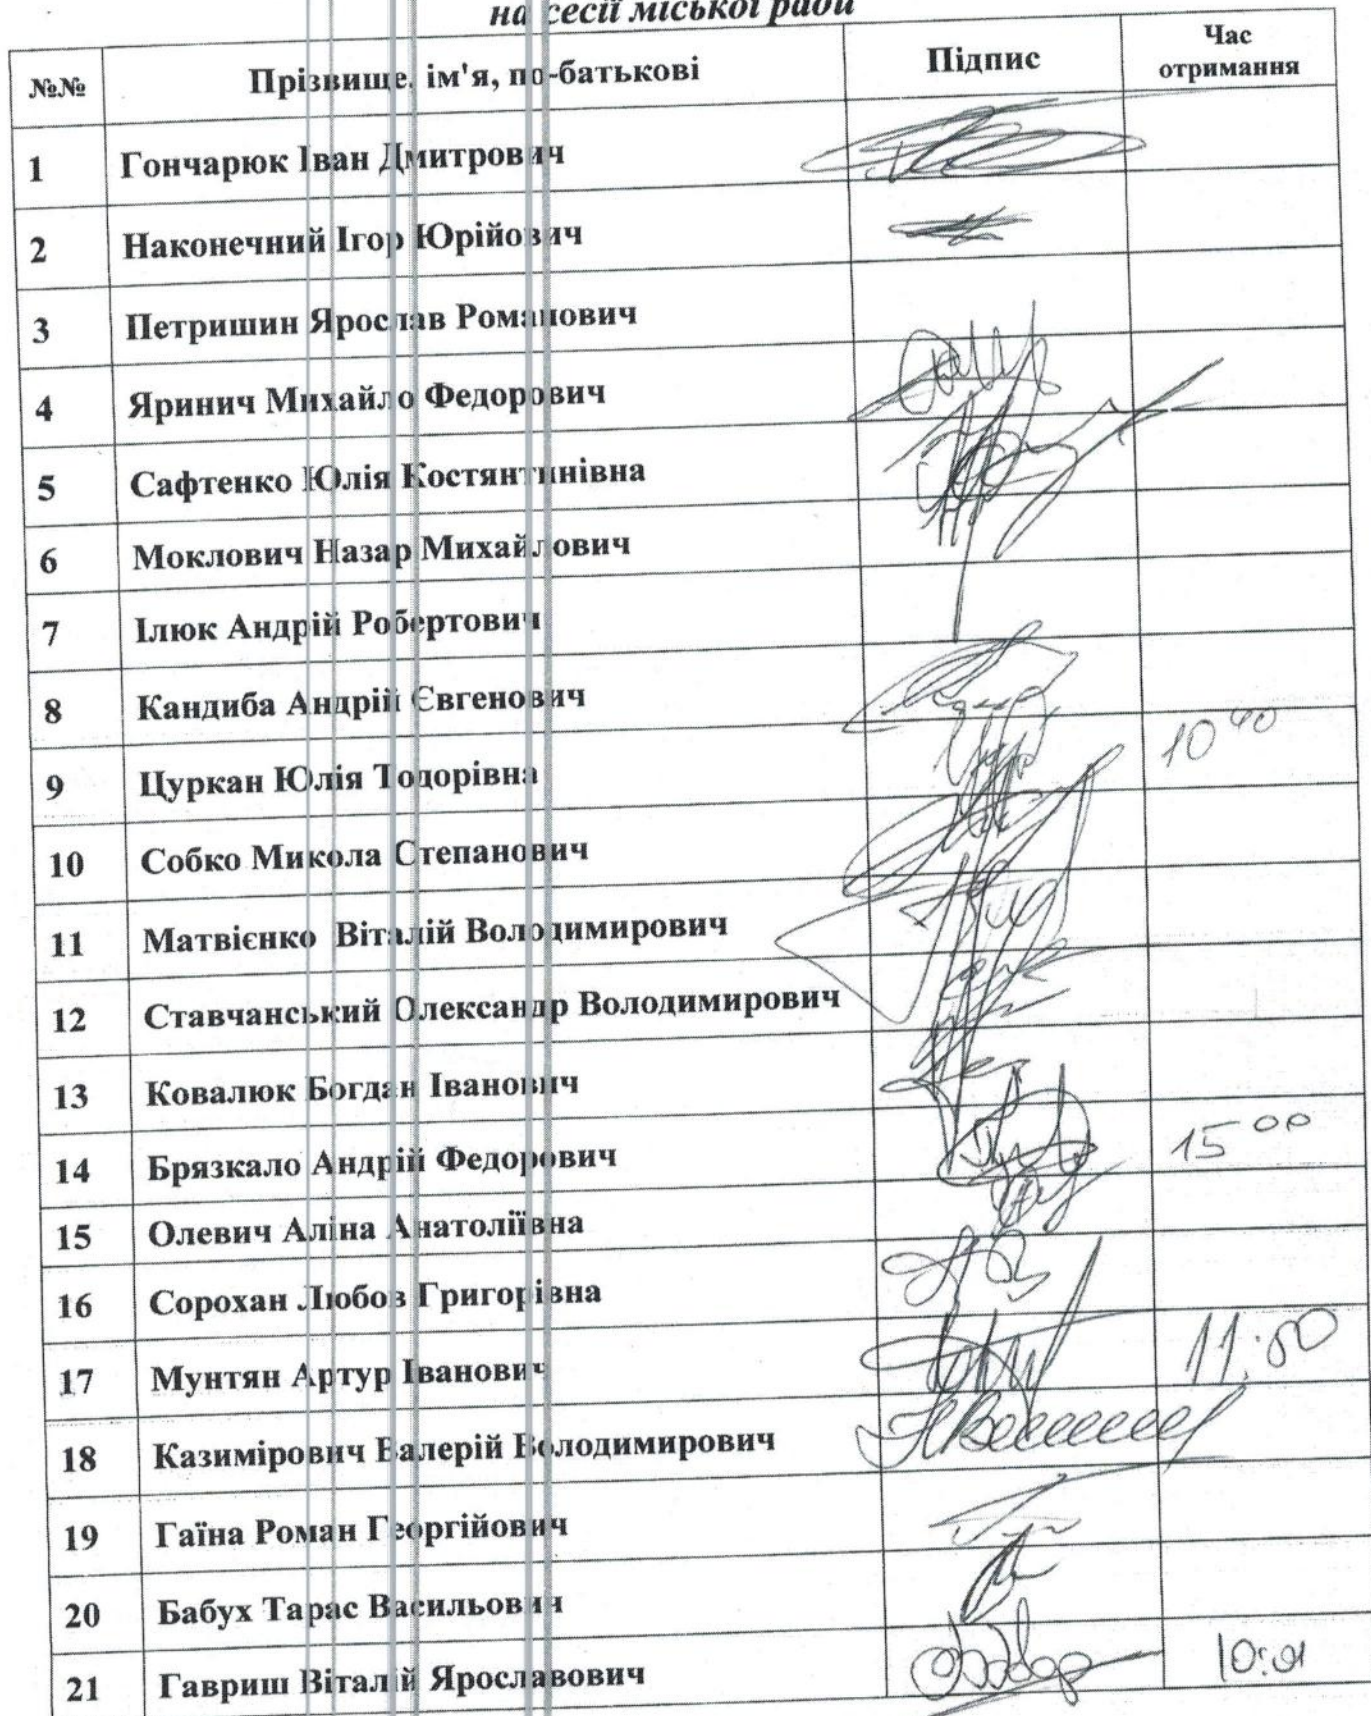 на сесії міської ради
№№ Прізвище, ім'я, по-батькові Підпис Час отримання
1 Гончарюк Іван Дмитрович
2 Наконечний Ігор Юрійович
3 Петришин Ярослав Романович
4 Яринич Михайло Федорович
5 Сафтенко Юлія Костянтинівна
6 Моклович Назар Михайлович
7 Ілюк Андрій Робертович
8 Кандиба Андрій Євгенович
9 Цуркан Юлія Тодорівна 10 40
10 Собко Микола Степанович
11 Матвієнко Віталій Володимирович
12 Ставчанський Олександр Володимирович
13 Ковалюк Богдан Іванович
14 Брязкало Андрій Федорович 15 00
15 Олевич Аліна Анатоліївна
16 Сорохан Любов Григорівна
17 Мунтян Артур Іванович 11:00
18 Казимірович Валерій Володимирович
19 Гаїна Роман Георгійович
20 Бабух Тарас Васильович
21 Гавриш Віталій Ярославович 10:01